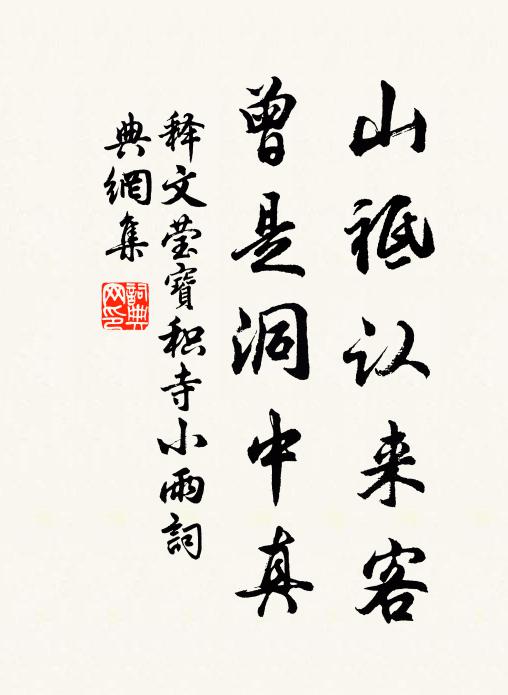 山祗认来客
曾是洞中真
释文莹宝积寺小雨詞
典網集
詞典网印